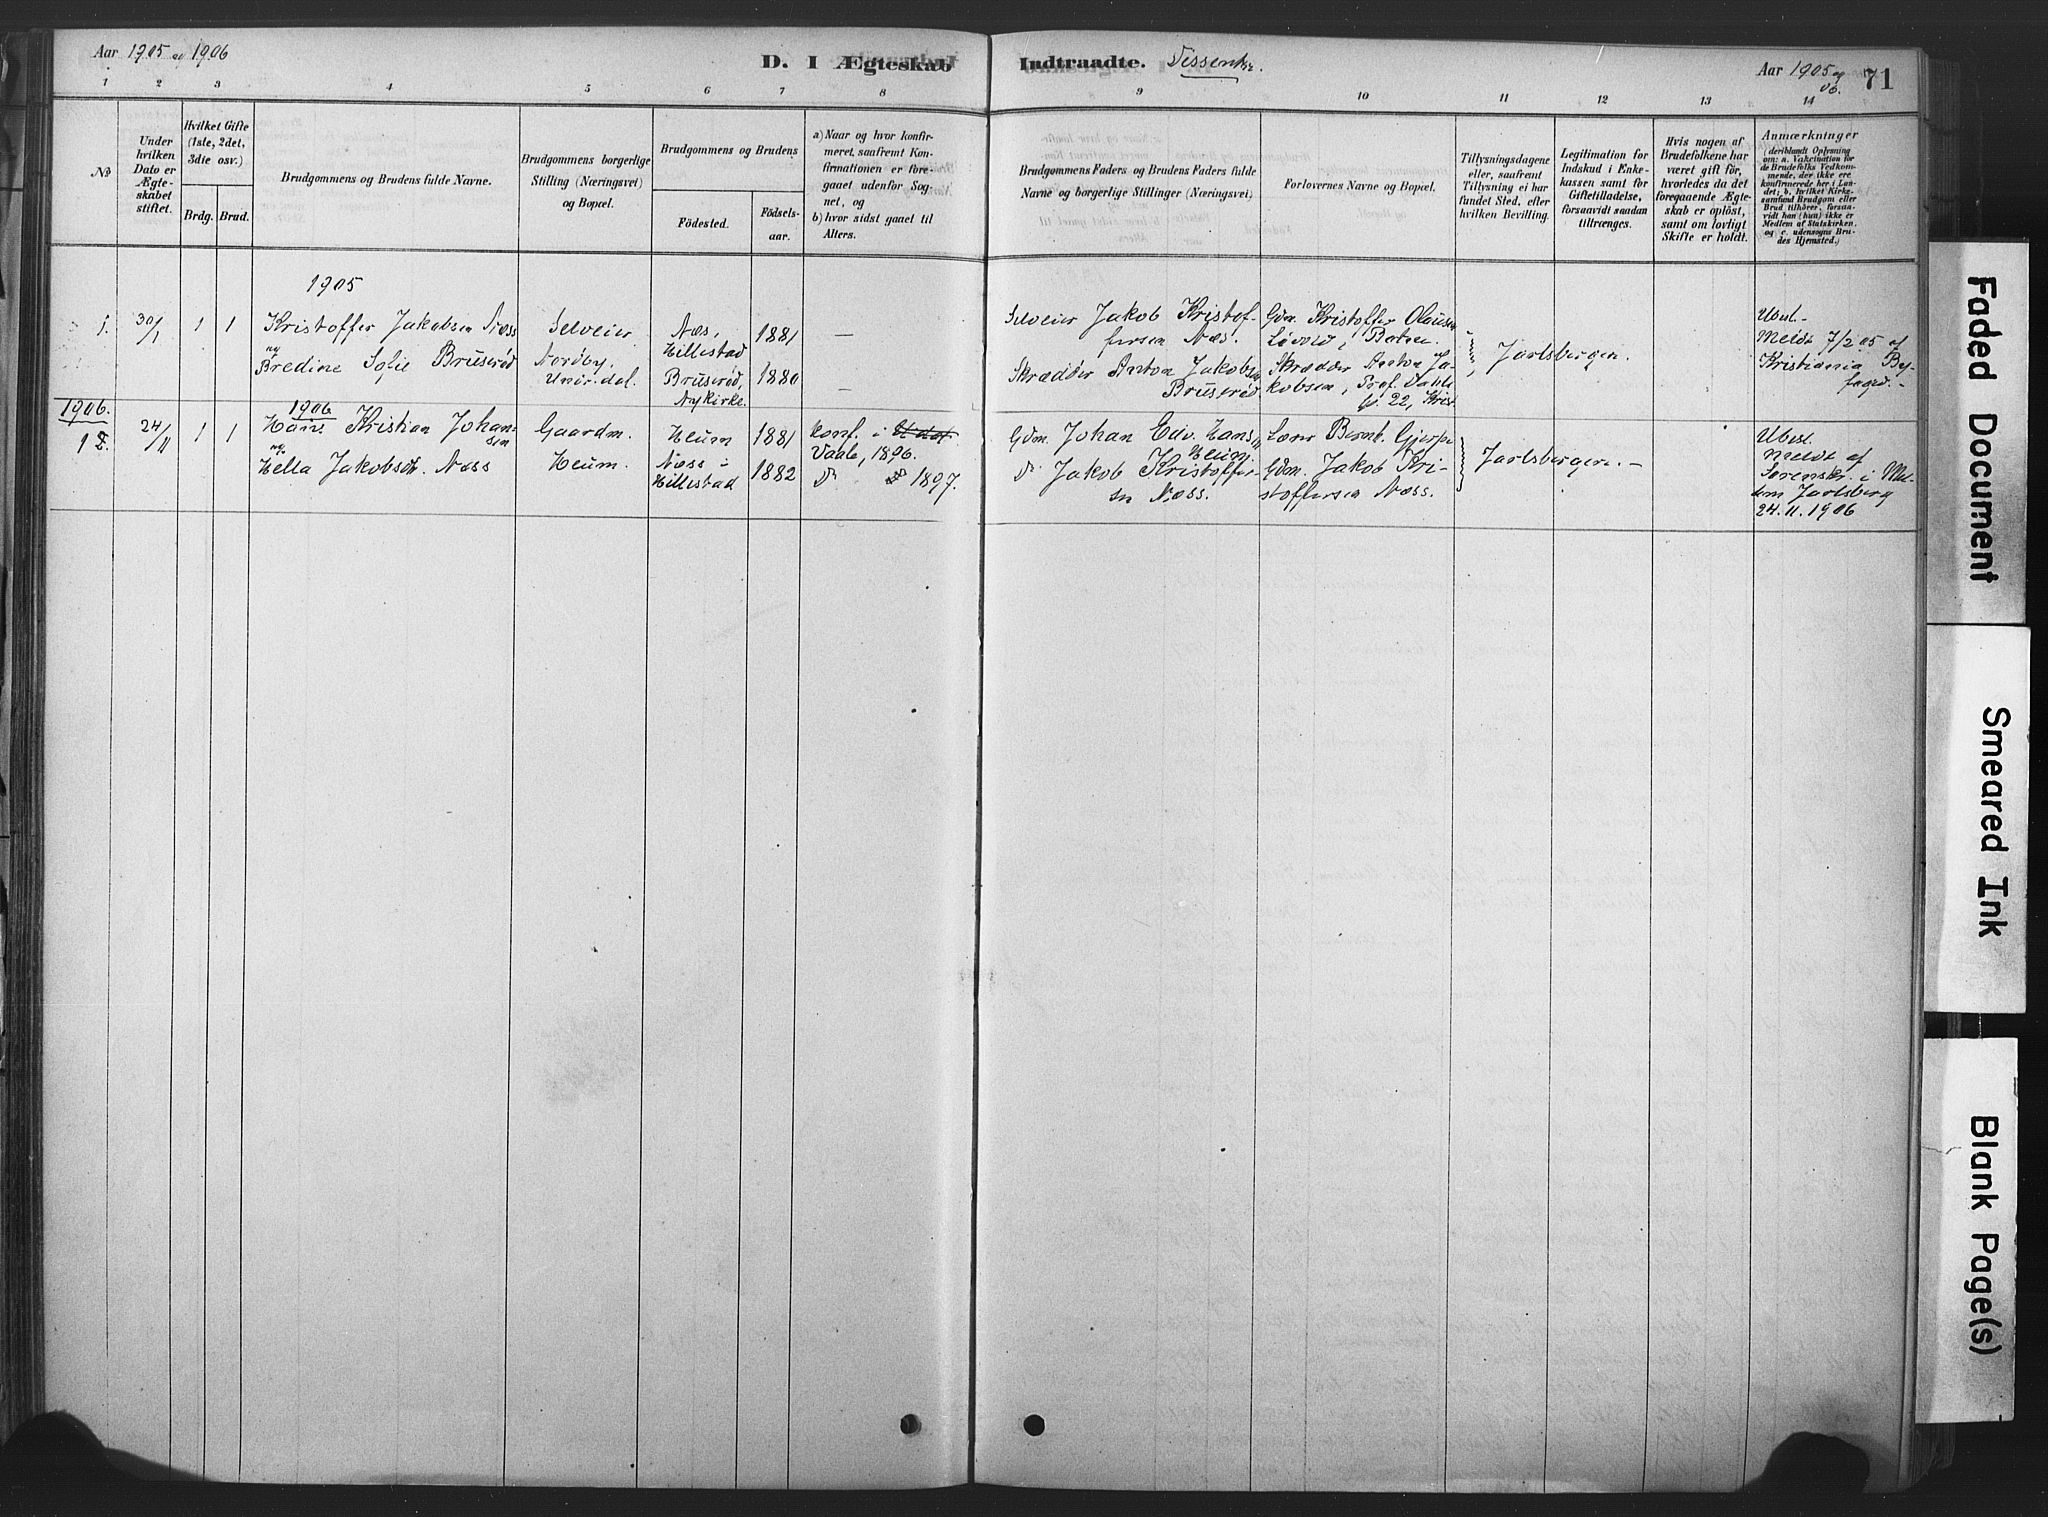 Aar 1905 og 1906
D. I Ægteskab
Indtraadte.
Aar 1905 og
06.
71
1 2 3 4 5 6 7 8 9 10 11 12 13 14
No
Under
hvilken
Dato er
Ægte-
skabet
stiftet.
Hvilket Gifte
(1ste, 2det,
3die osv.)
Brdg. Brud.
Brudgommens og Brudens fulde Navne.
Brudgommens borgerlige
Stilling (Næringsvei)
og Bopæl.
Brudgommens og Brudens
Födested.
Födsels-
aar.
a) Naar og hvor konfir-
meret, saafremt Kon-
firmationen er fore-
gaaet udenfor Sog-
net, og
b) hvor sidst gaaet til
Alters.
Brudgommens Faders og Brudens Faders fulde
Navne og borgerlige Stillinger (Næringsvei)
Forlovernes Navne og Bopæl.
Tillysningsdagene
eller, saafremt
Tillysning ei har
fundet Sted, efter
hvilken Bevilling.
Legitimation for
Indskud i Enke-
kassen samt for
Giftetilladelse,
forsaavidt saadan
tiltrænges.
Hvis nogen af
Brudefolkene har
været gift før,
hvorledes da det
foregaaende Ægte-
skab er oplöst,
samt om lovligt
Skifte er holdt.
Anmærkninger
(deriblandt Oplysning
om: a. Vakcination for
de Brudefolks Vedkom-
mende, der ikke ere
konfirmerede her i Lan-
det; b. hvilket Kirke-
samfund Brudgom eller
Brud tilhörer, forsaa-
vidt han (hun) ikke er
Medlem af Statskirken.
og c. udensogns Bru-
des Hjemsted.)
1905
1. 30/1 1 1
Kristoffer Jakobsen Næss
og
Bredine Sofie Bruserød
Selveier
Nordby,
Undr.dal.
Næs,
Hillestad
1881
—
Bruserød,
Nykirke.
1880
—
Selveier Jakob Kristof-
fersen Næs.
Skrædder Anton Jakobsen
Bruserød
Gdm. Kristoffer Olausen
Løvold, Botne.
Skrædder Anton Ja-
kobsen, Prof. Dahls
G. 22, Krist.
Jarlsbergeren.
Meldt 7/2 05 af
Kristiania By-
foged. -
1906.
1 24/11 1 1
1906
Hans Kristian Johan-
sen
og
Hella Jakobsdt. Næss
Gaardm.
Heum.
Heum
1881
Næss i
Hillestad
1882
Konf. i
Vaale, 1896.
Do 1897.
Gdm. Johan Edv. Hansen
Heum
Do Jakob Kristoffer-
sen Næss.
Lærer Bernt. Gjerpe
Gdm. Jakob Kri-
stoffersen Næss.
Jarlsbergeren. -
Meldt af
Sorenskr. i Mel-
lem Jarlsberg
24.11.1906
Faded Document
Smeared Ink
Blank Page(s)